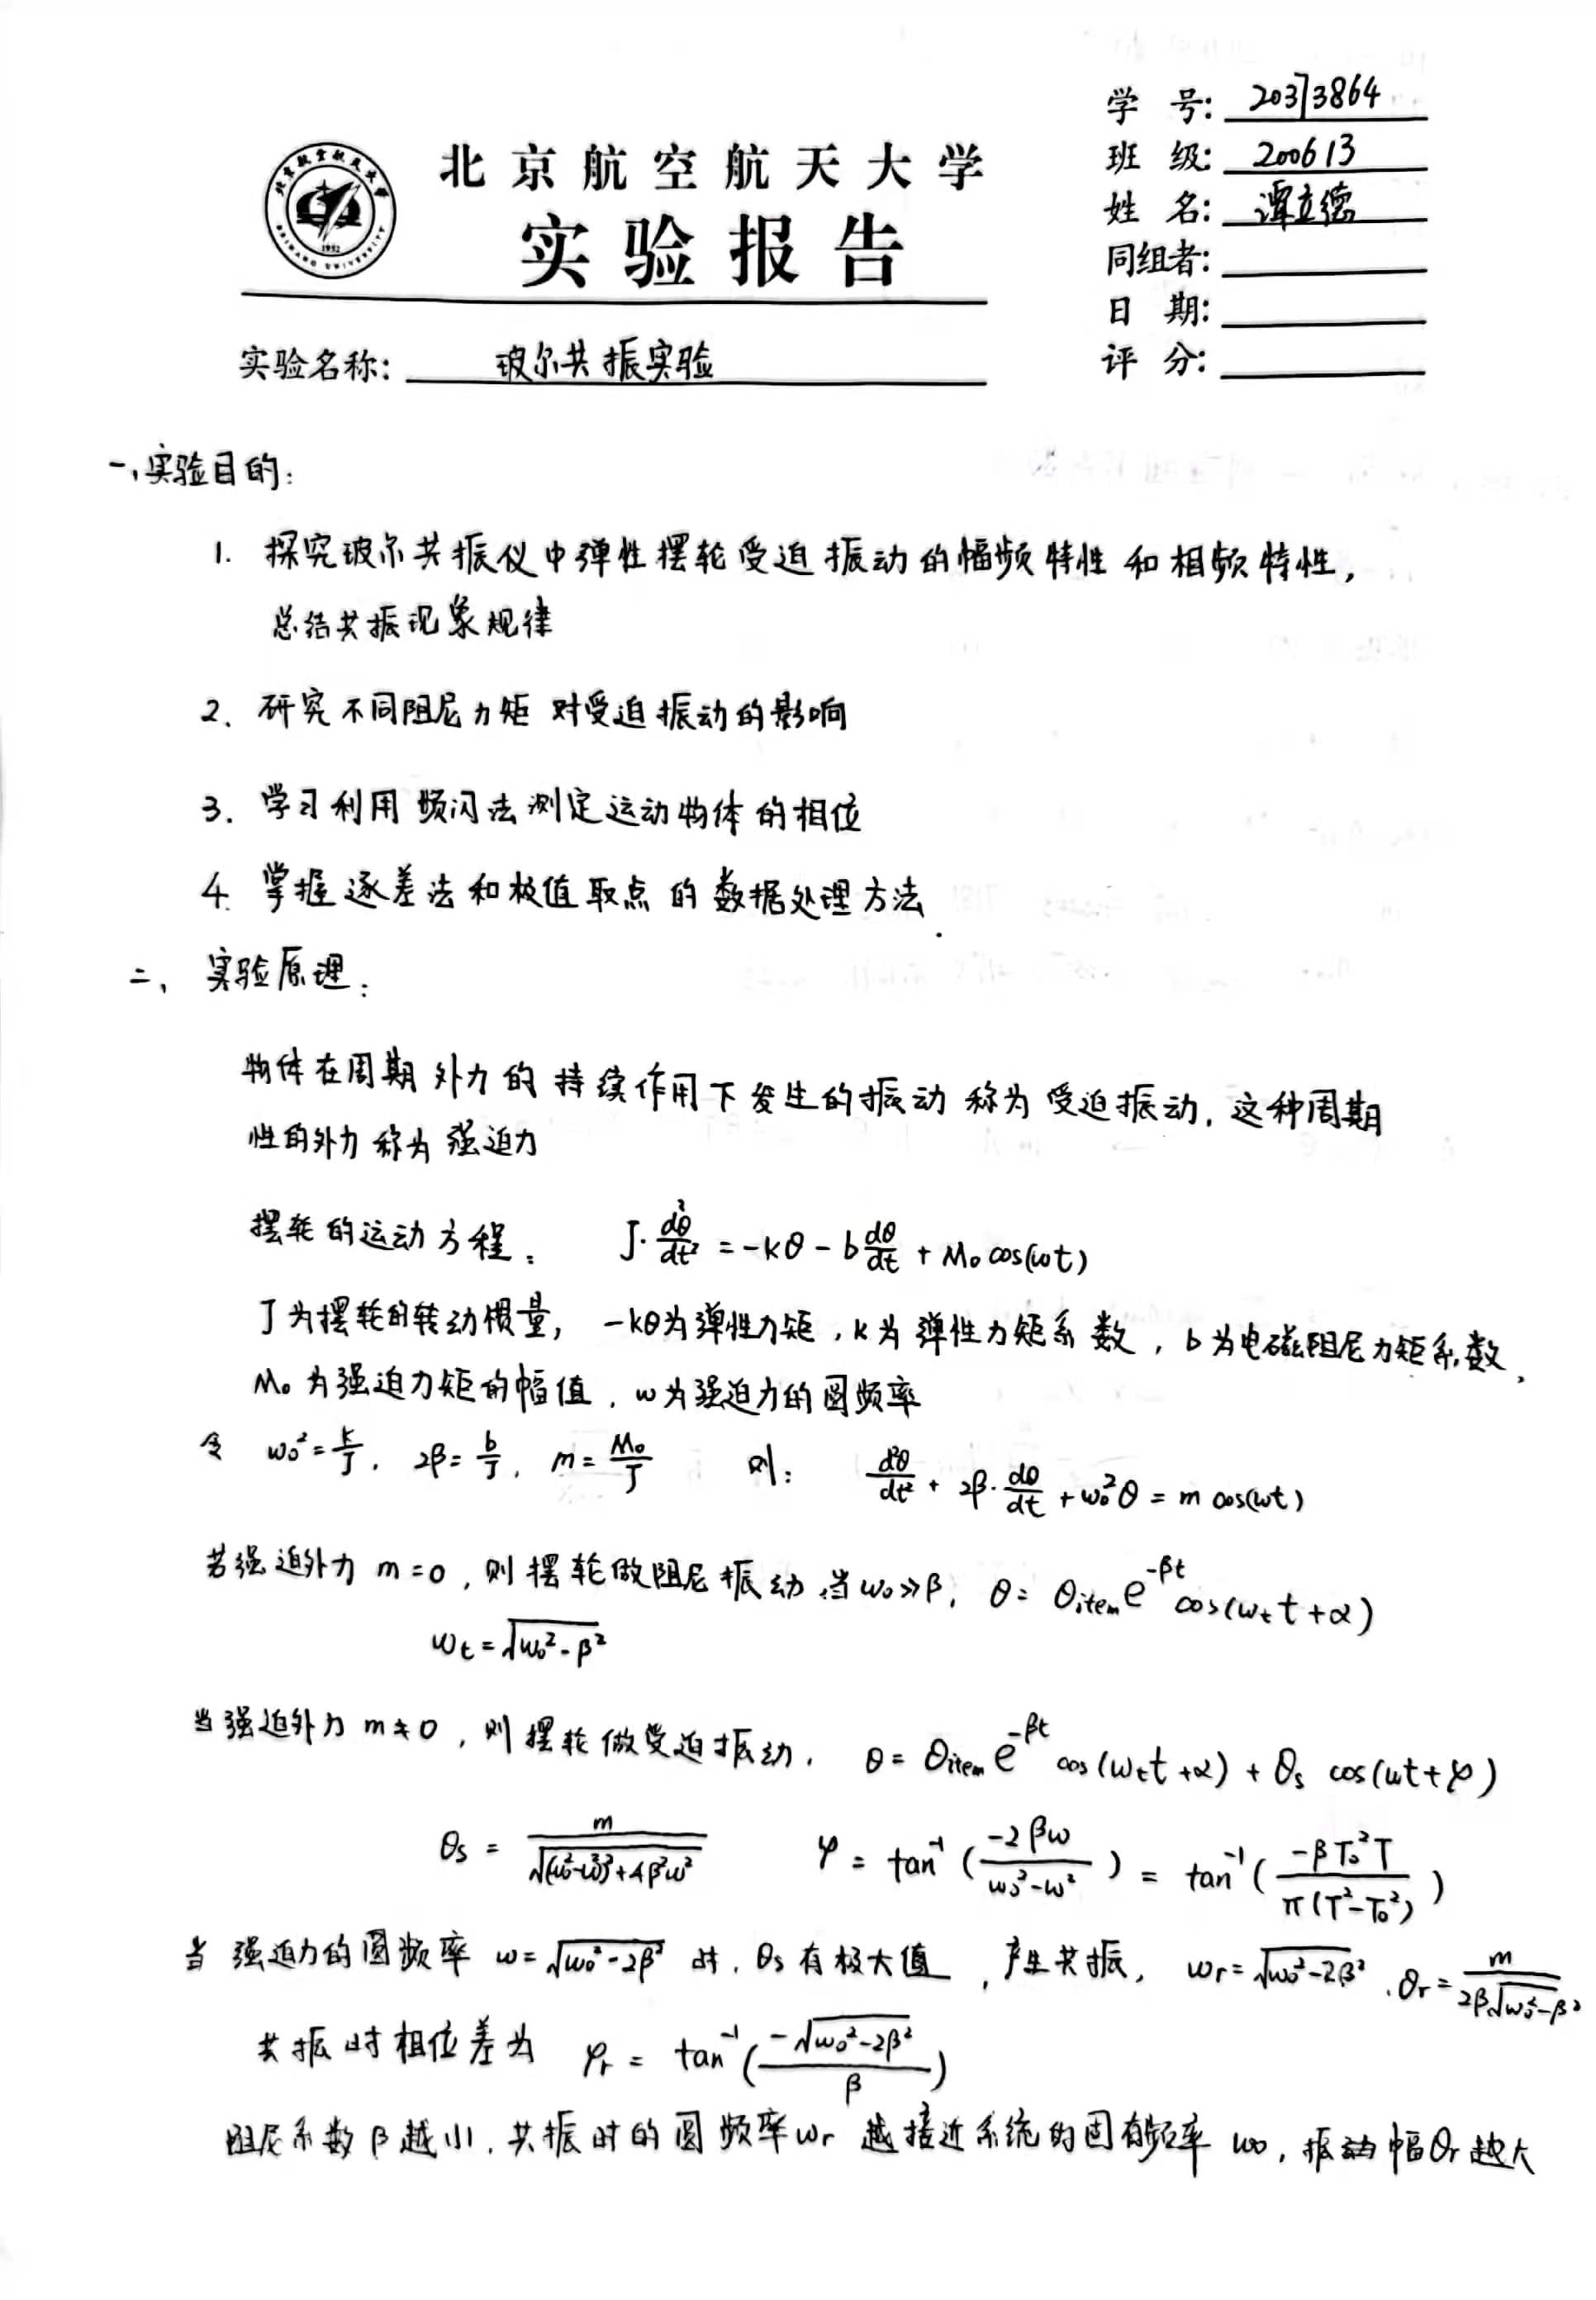 学 号: 20373864
班 级: 200613
姓 名: 谭立德
同组者:
日 期:
评 分:
北京航空航天大学
实验报告
1952
实验名称: 玻尔共振实验
一、实验目的:
1. 探究玻尔共振仪中弹性摆轮受迫振动的幅频特性和相频特性,
总结共振现象规律
2. 研究不同阻尼力矩对受迫振动的影响
3. 学习利用频闪法测定运动物体的相位
4. 掌握逐差法和极值取点的数据处理方法.
二、实验原理:
物体在周期外力的持续作用下发生的振动称为受迫振动,这种周期
性的外力称为强迫力
摆轮的运动方程: J·d²θ/dt² = -kθ - b dθ/dt + M₀ cos(ωt)
J为摆轮的转动惯量, -kθ为弹性力矩,k为弹性力矩系数,b为电磁阻尼力矩系数,
M₀为强迫力矩的幅值,ω为强迫力的圆频率
令 ω₀²=k/J, 2β=b/J, m=M₀/J 则: d²θ/dt² + 2β·dθ/dt + ω₀²θ = m cos(ωt)
若强迫外力 m=0,则摆轮做阻尼振动,当ω₀≫β, θ= θitem e^(-βt) cos(ωt t+α)
ωt=√(ω₀²-β²)
当强迫外力 m≠0,则摆轮做受迫振动, θ= θitem e^(-βt) cos(ωt t+α) + θs cos(ωt+φ)
θs = m/√((ω₀²-ω²)²+4β²ω²) φ = tan⁻¹(-2βω/(ω₀²-ω²)) = tan⁻¹(-βT₀²T/(π(T²-T₀²)))
当强迫力的圆频率 ω=√(ω₀²-2β²) 时,θs有极大值,产生共振, ωr=√(ω₀²-2β²),θr=m/(2β√(ω₀²-β²))
共振时相位差为 φr = tan⁻¹(-√(ω₀²-2β²)/β)
阻尼系数β越小,共振时的圆频率ωr 越接近系统的固有频率 ω₀,振动幅θr越大